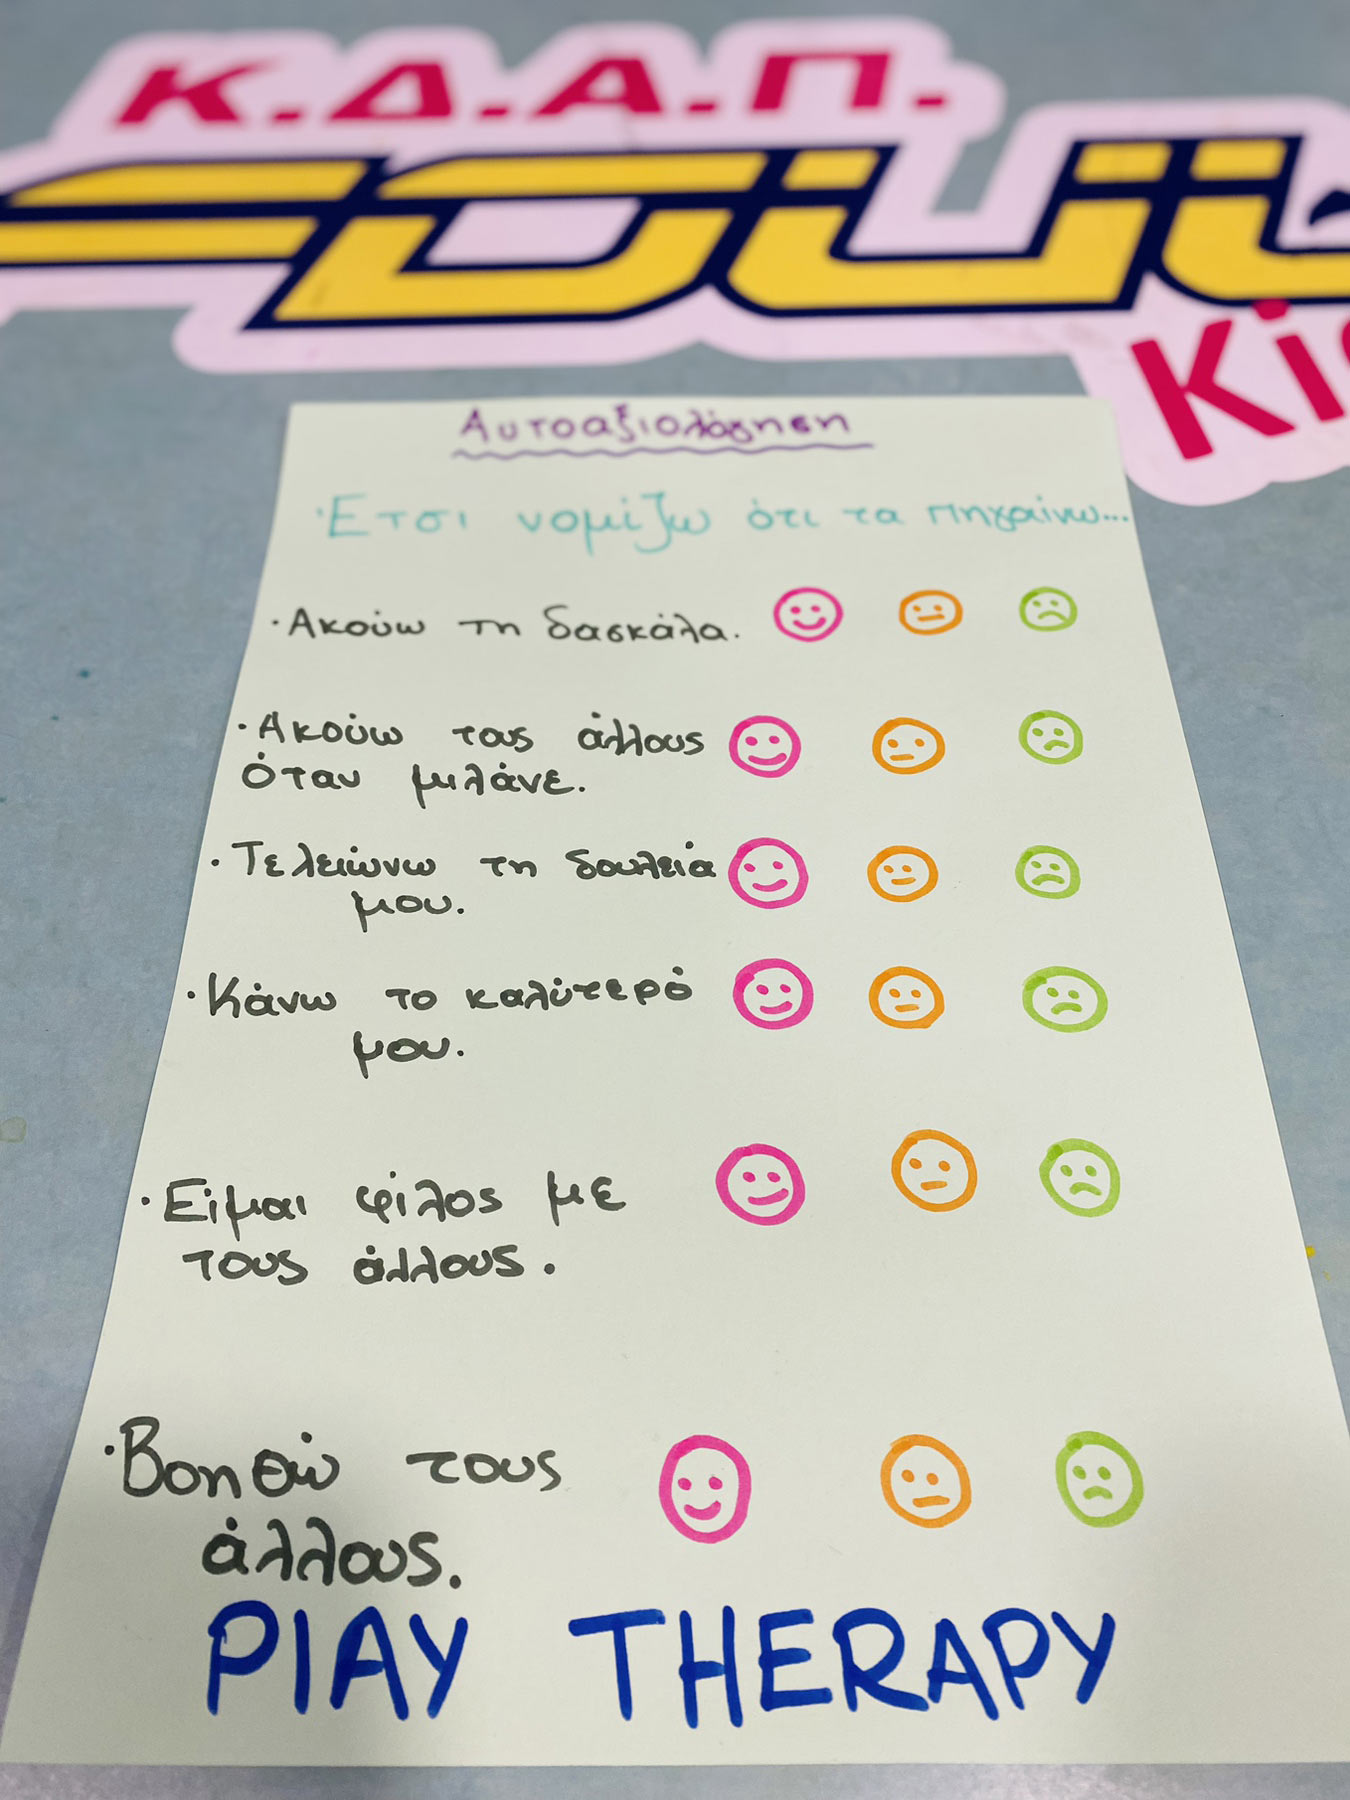 Κ.Δ.Α.Π.
Αυτοαξιολόγηση
Έτσι νομίζω ότι τα πηγαίνω...
·Ακούω τη δασκάλα.
·Ακούω τους άλλους
όταν μιλάνε.
·Τελειώνω τη δουλειά
μου.
·Κάνω το καλύτερό
μου.
·Είμαι φίλος με
τους άλλους.
·Βοηθώ τους
άλλους.
PlAY THERAPY